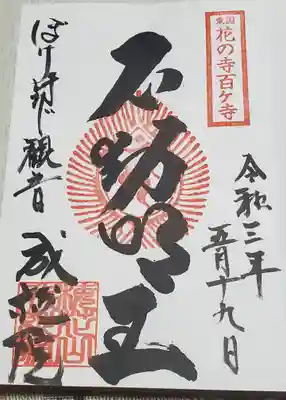 東国
花の寺百ケ寺
令和三年
五月十九日
不動明王
ぼけ封じ観音
成就院